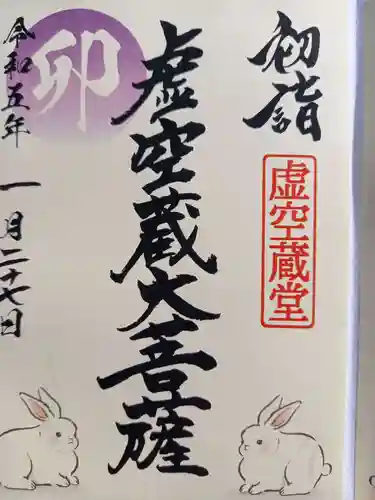 初詣
虚空蔵堂
虚空蔵大菩薩
卯
令和五年 一月二十七日